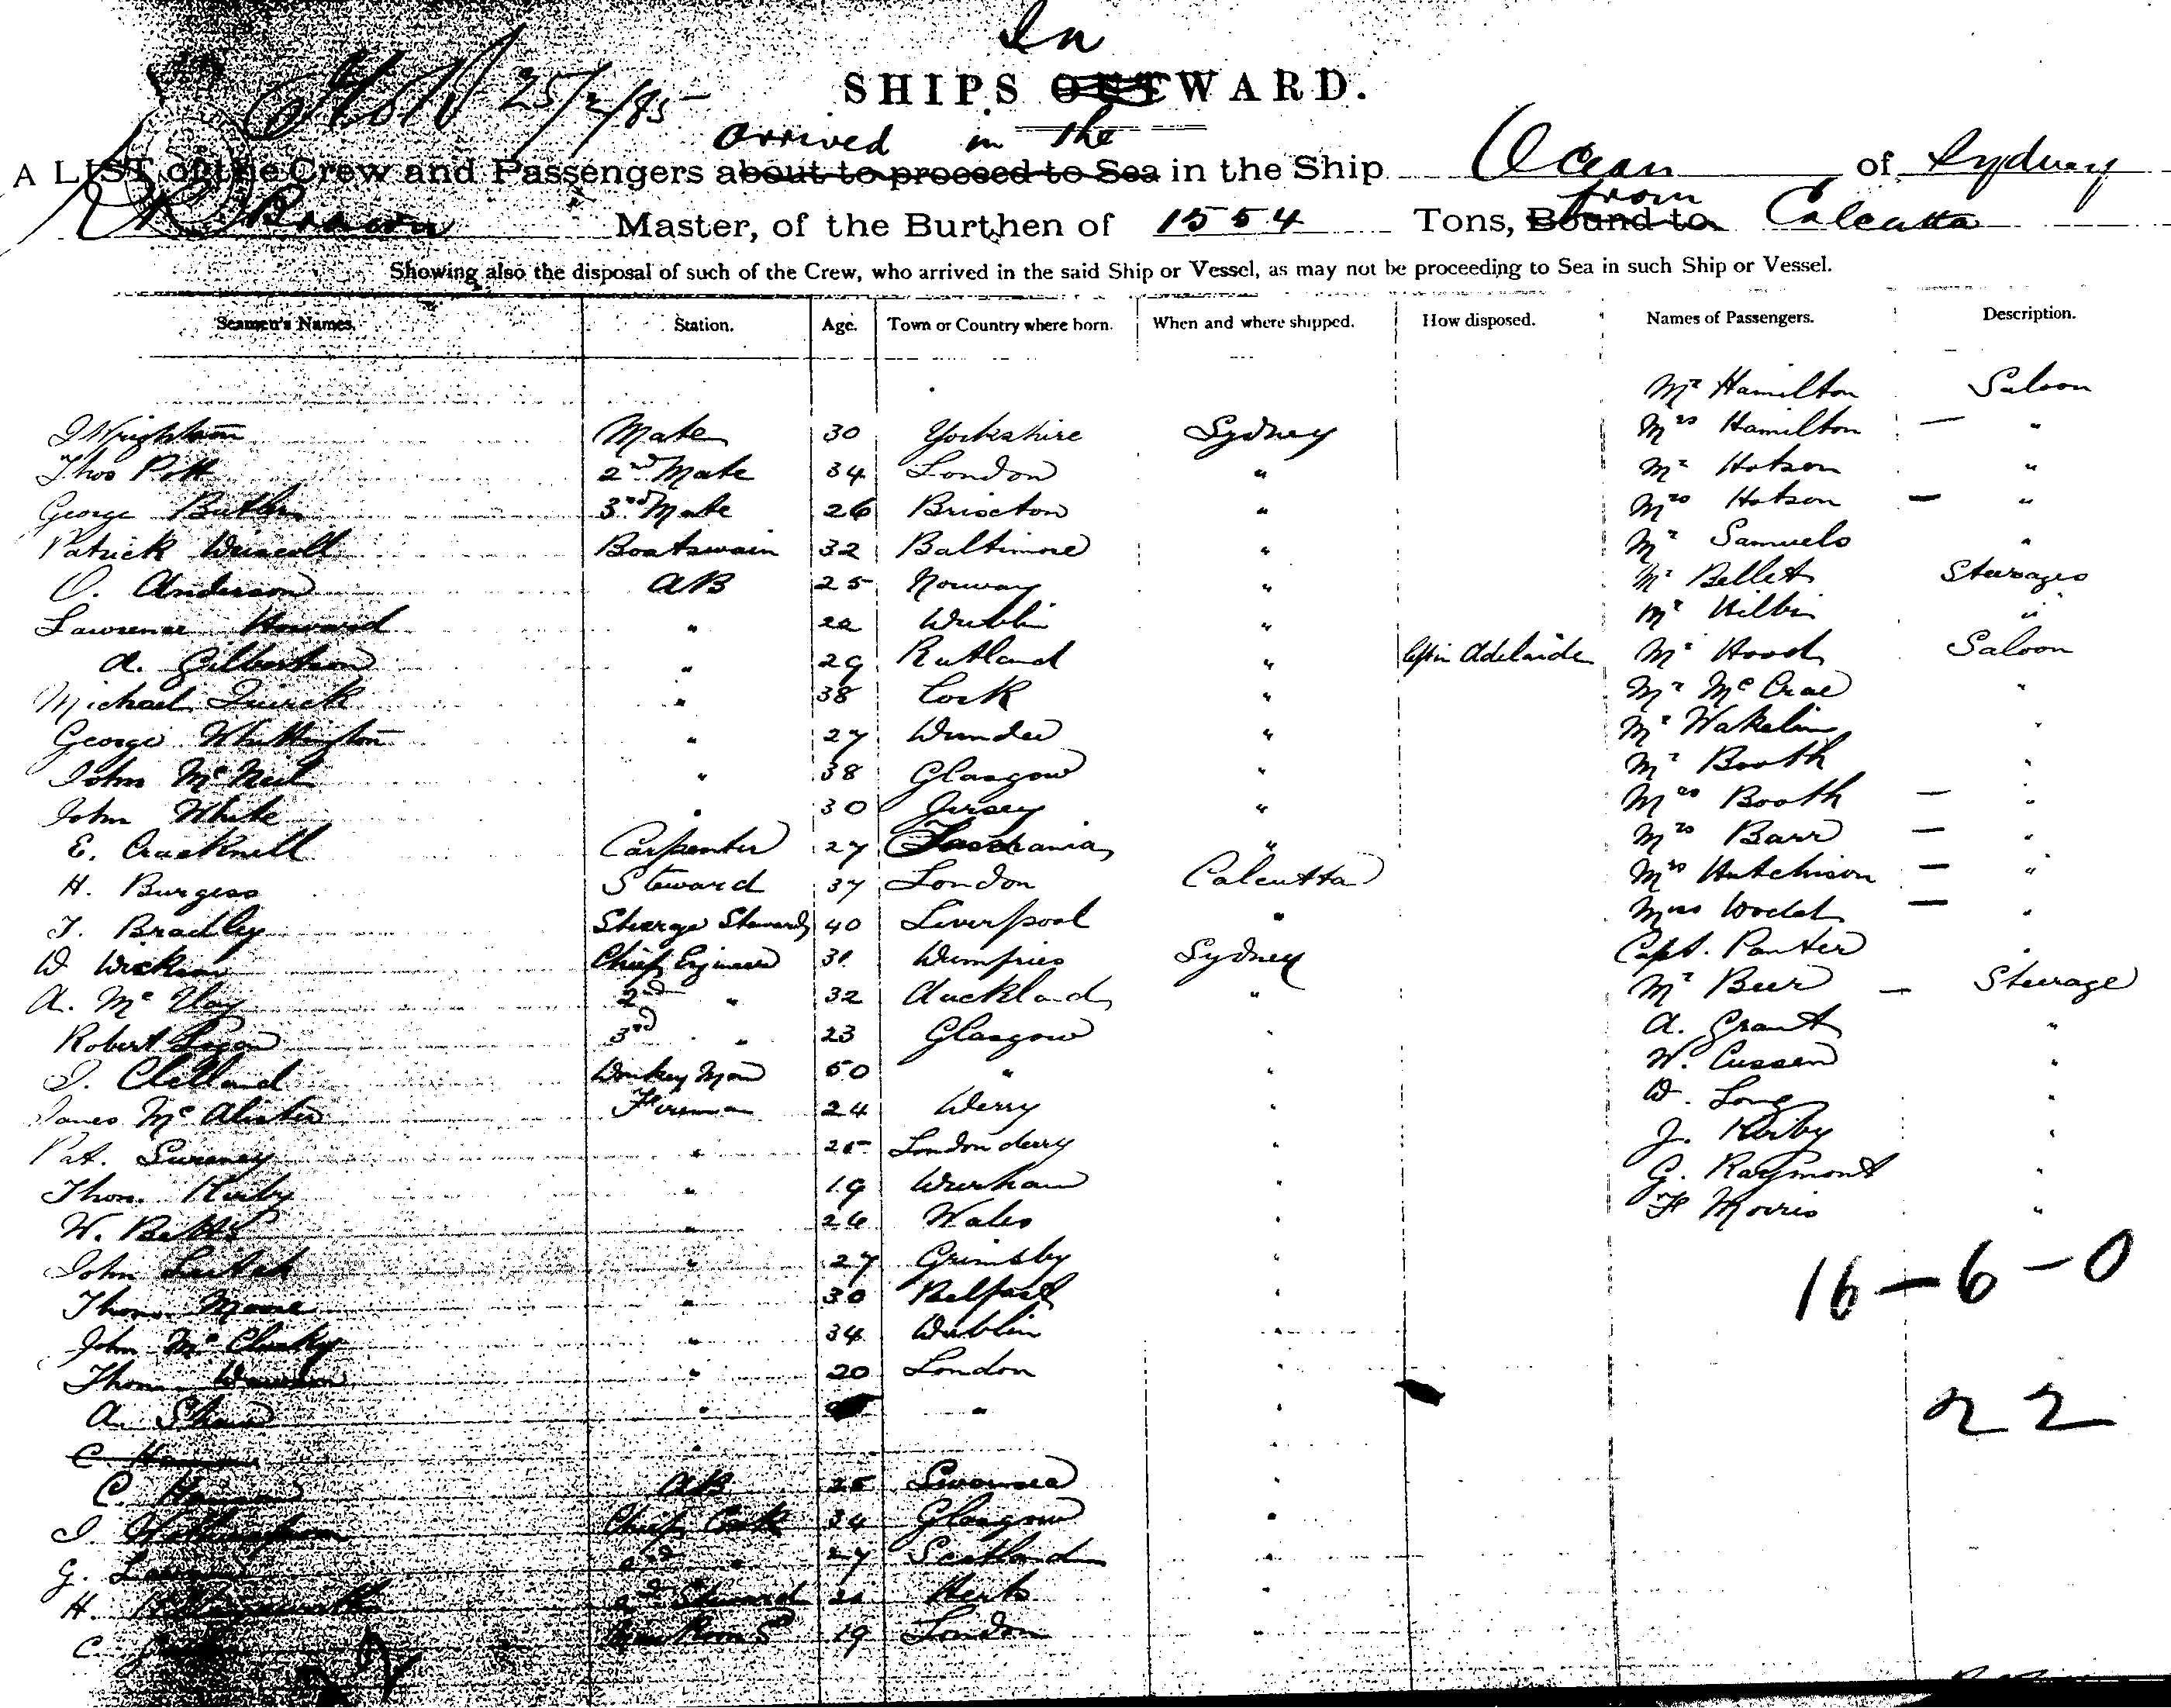 In
SHIPS OUTWARD.
25/2/85
arrived in the
A LIST of the Crew and Passengers about to proceed to Sea in the Ship Ocean of Sydney
R Brown Master, of the Burthen of 1554 Tons, Bound to from Calcutta
Showing also the disposal of such of the Crew, who arrived in the said Ship or Vessel, as may not be proceeding to Sea in such Ship or Vessel.
Seamen's Names. Station. Age. Town or Country where born. When and where shipped. How disposed. Names of Passengers. Description.
Mr Hamilton Saloon
Mate 30 Yorkshire Sydney Mrs Hamilton — "
Thos Pott 2nd Mate 34 London " Mr Hotson "
George Butler 3rd Mate 26 Brixton " Mrs Hotson — "
Patrick Driscoll Boatswain 32 Baltimore " Mr Samuels "
O. Anderson AB 25 Norway " Mr Bellet Steerage
Lawrence Howard " 22 Dublin " Mr Hilbin "
A. Gilbertson " 29 Rutland " left in Adelaide Mr Hood Saloon
Michael Quirck " 38 Cork " Mr McCrae "
George Whittington " 27 Dundee " Mr Wakelin "
John McNeil " 38 Glasgow " Mr Booth "
John White " 30 Jersey " Mrs Booth — "
E. Cracknell Carpenter 27 Tasmania " Mrs Barr — "
H. Burgess Steward 37 London Calcutta Mrs Hutchison — "
T. Bradley Steerage Steward 40 Liverpool " Miss — "
D Chief Engineer 31 Dumfries Sydney Capt. Panter "
A. Mc 2nd " 32 Auckland " Mr Beer — Steerage
Robert Logan 3rd " 23 Glasgow " A. Grant "
J. Clelland Donkey Man 50 " " W. Cussen "
James McAlister Fireman 24 Derry " D. Long "
Pat. Sweeney " 25 Londonderry " J. Kirby "
Thom. Kirby " 19 Durham " G. Raymont "
W. Betts " 26 Wales " F Morris "
John " 27 Grimsby "
16-6-0
Thom Moore " 30 Belfast "
John McClusky " 34 Dublin "
Thom " 20 London "
A. Shaw " " "
22
C "
C. AB 25 Swansea "
J. Chief Cook 34 Glasgow "
G. 2nd " 27 Scotland "
H. 2nd Steward 21 Herts "
C. 19 London "